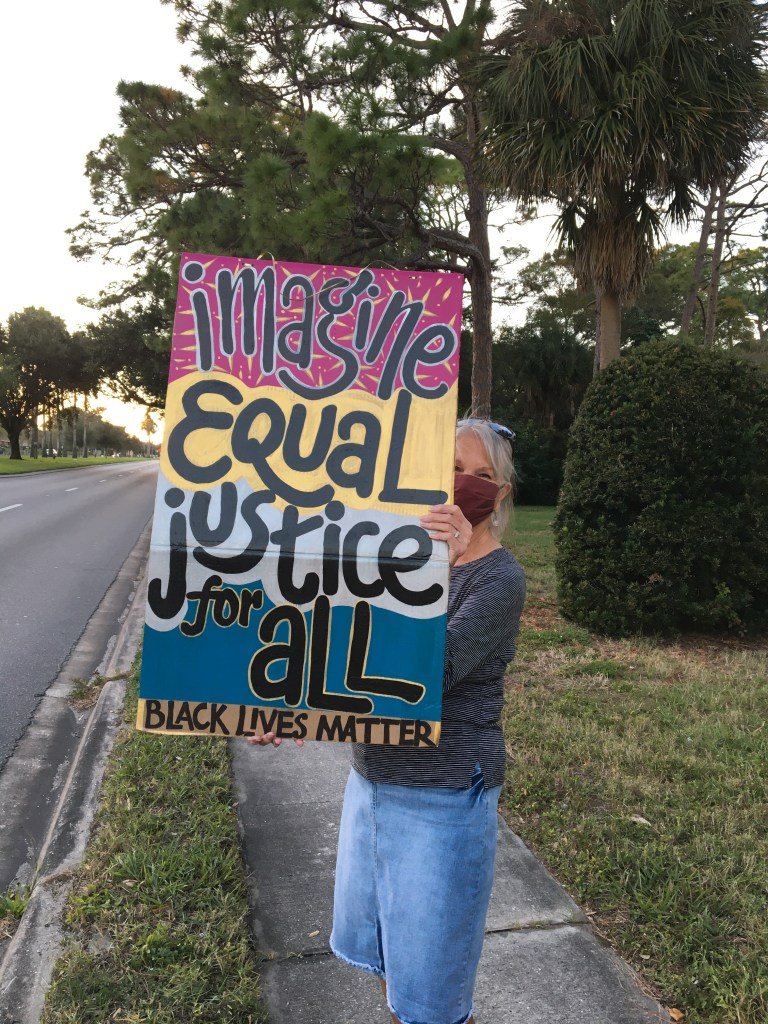 imagine
EQuaL
justice
for
aLL
BLACK LIVES MATTER